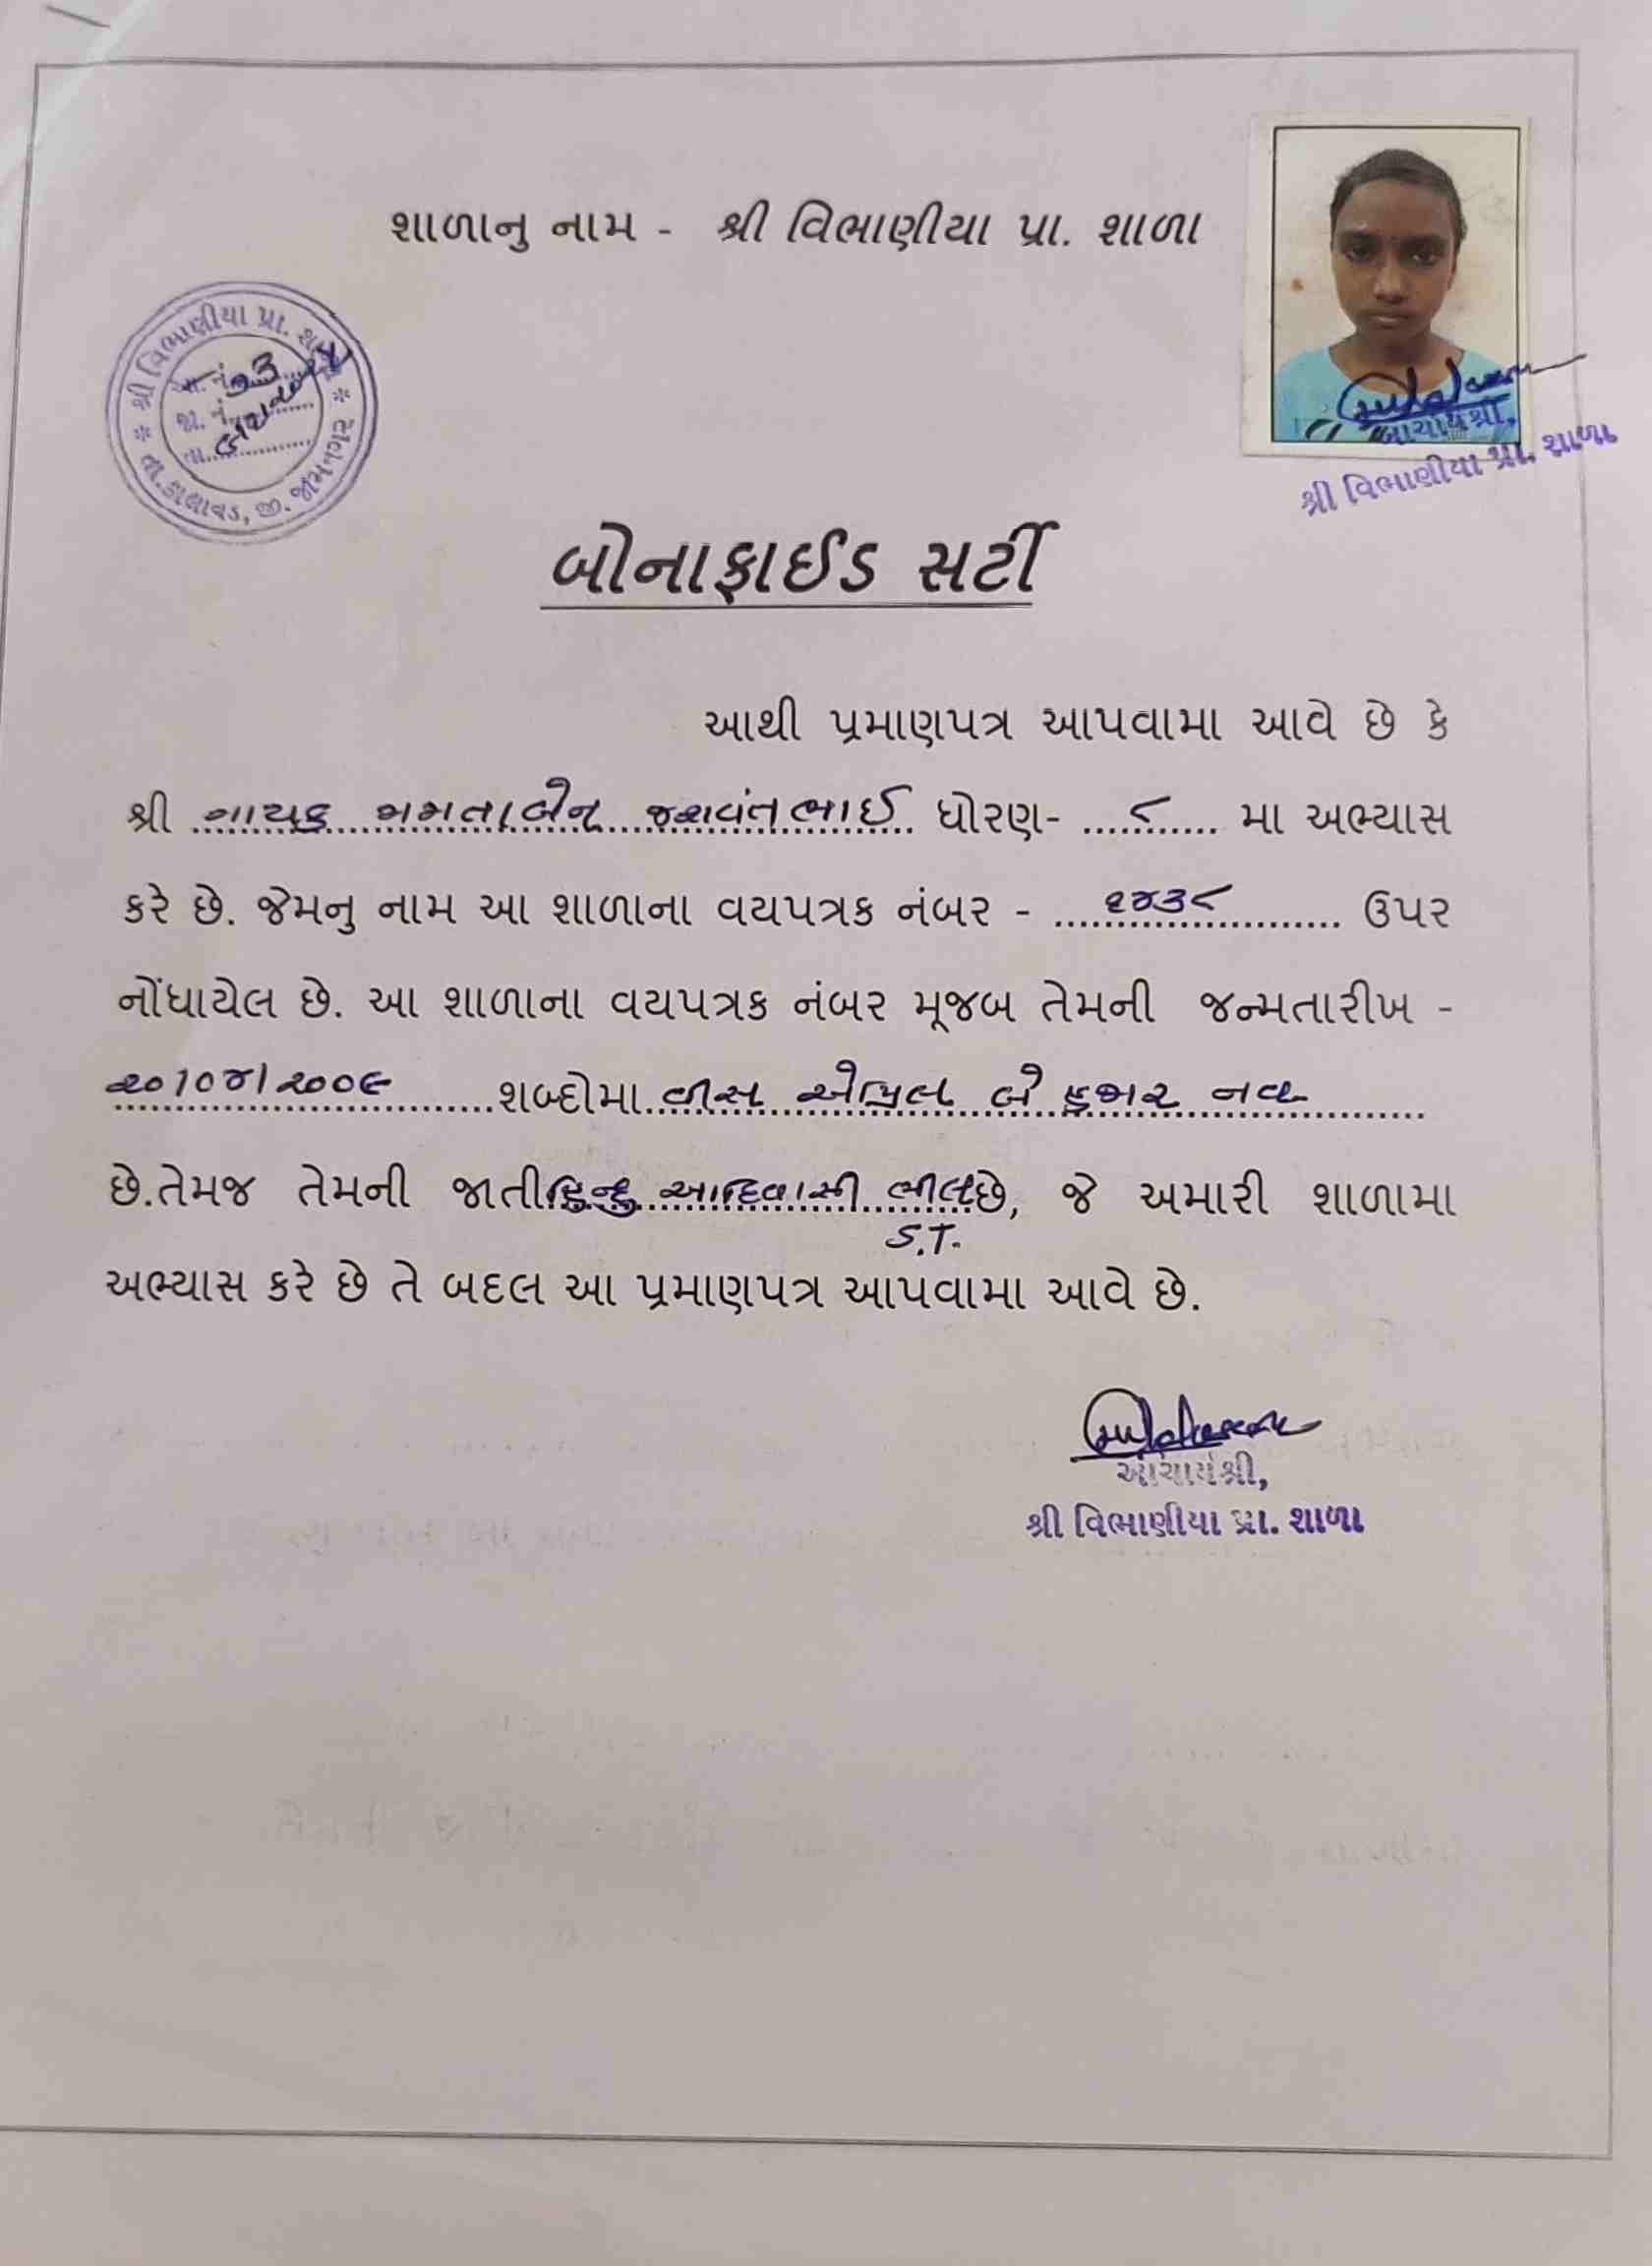 શાળાનુ નામ - શ્રી વિભાણીયા પ્રા. શાળા
શ્રી વિભાણીયા પ્રા.
જા. નં.
તા.
તા.કાલાવડ, જી. જામનગર
આચાર્યશ્રી,
શ્રી વિભાણીયા પ્રા. શાળા
બોનાફાઈડ સર્ટી
આથી પ્રમાણપત્ર આપવામા આવે છે કે
શ્રી નાયક મમતાબેન જશવંતભાઈ ધોરણ- ૮ મા અભ્યાસ
કરે છે. જેમનુ નામ આ શાળાના વયપત્રક નંબર - ૧૪૩૮ ઉપર
નોંધાયેલ છે. આ શાળાના વયપત્રક નંબર મૂજબ તેમની જન્મતારીખ -
૨૦/૦૪/૨૦૦૯ શબ્દોમા વીસ એપ્રિલ બે હજાર નવ
છે.તેમજ તેમની જાતી હિન્દુ આદિવાસી ભીલ છે, જે અમારી શાળામા
S.T.
અભ્યાસ કરે છે તે બદલ આ પ્રમાણપત્ર આપવામા આવે છે.
આચાર્યશ્રી,
શ્રી વિભાણીયા પ્રા. શાળા